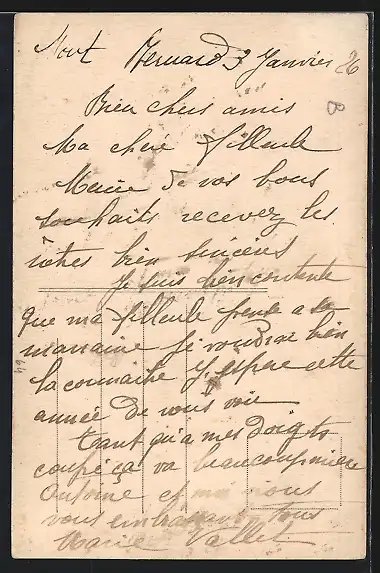 Mort Hernard 3 Janvier 26
B
Bien chers amis
Ma cheré filleule
Marie de vos bons
souhaits recevez les
notres bien sincères
Je suis bien contente
que ma filleule pense a sa
marraine Je voudrai bien
la connaitre J'espere cette
année de vous voir
Tant qu'a mes doigts
coupé ça va beaucoup mieux
Antoine et moi nous
vous embrassant tous
Marie Vallet